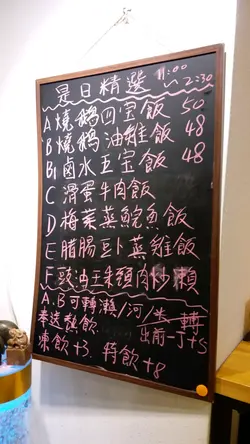 是日精選 11:00~2:30
A 燒鵝四宝飯 50
B 燒鵝油雞飯 48
B1 鹵水五宝飯 48
C 滑蛋牛肉飯
D 梅菜蒸鯇魚飯
E 腊腸豆卜蒸雞飯
F 豉油王朱頸肉炒瀨
A.B可轉瀨/河/米 轉
奉送熱飲 出前一丁+5
凍飲+3 特飲+8